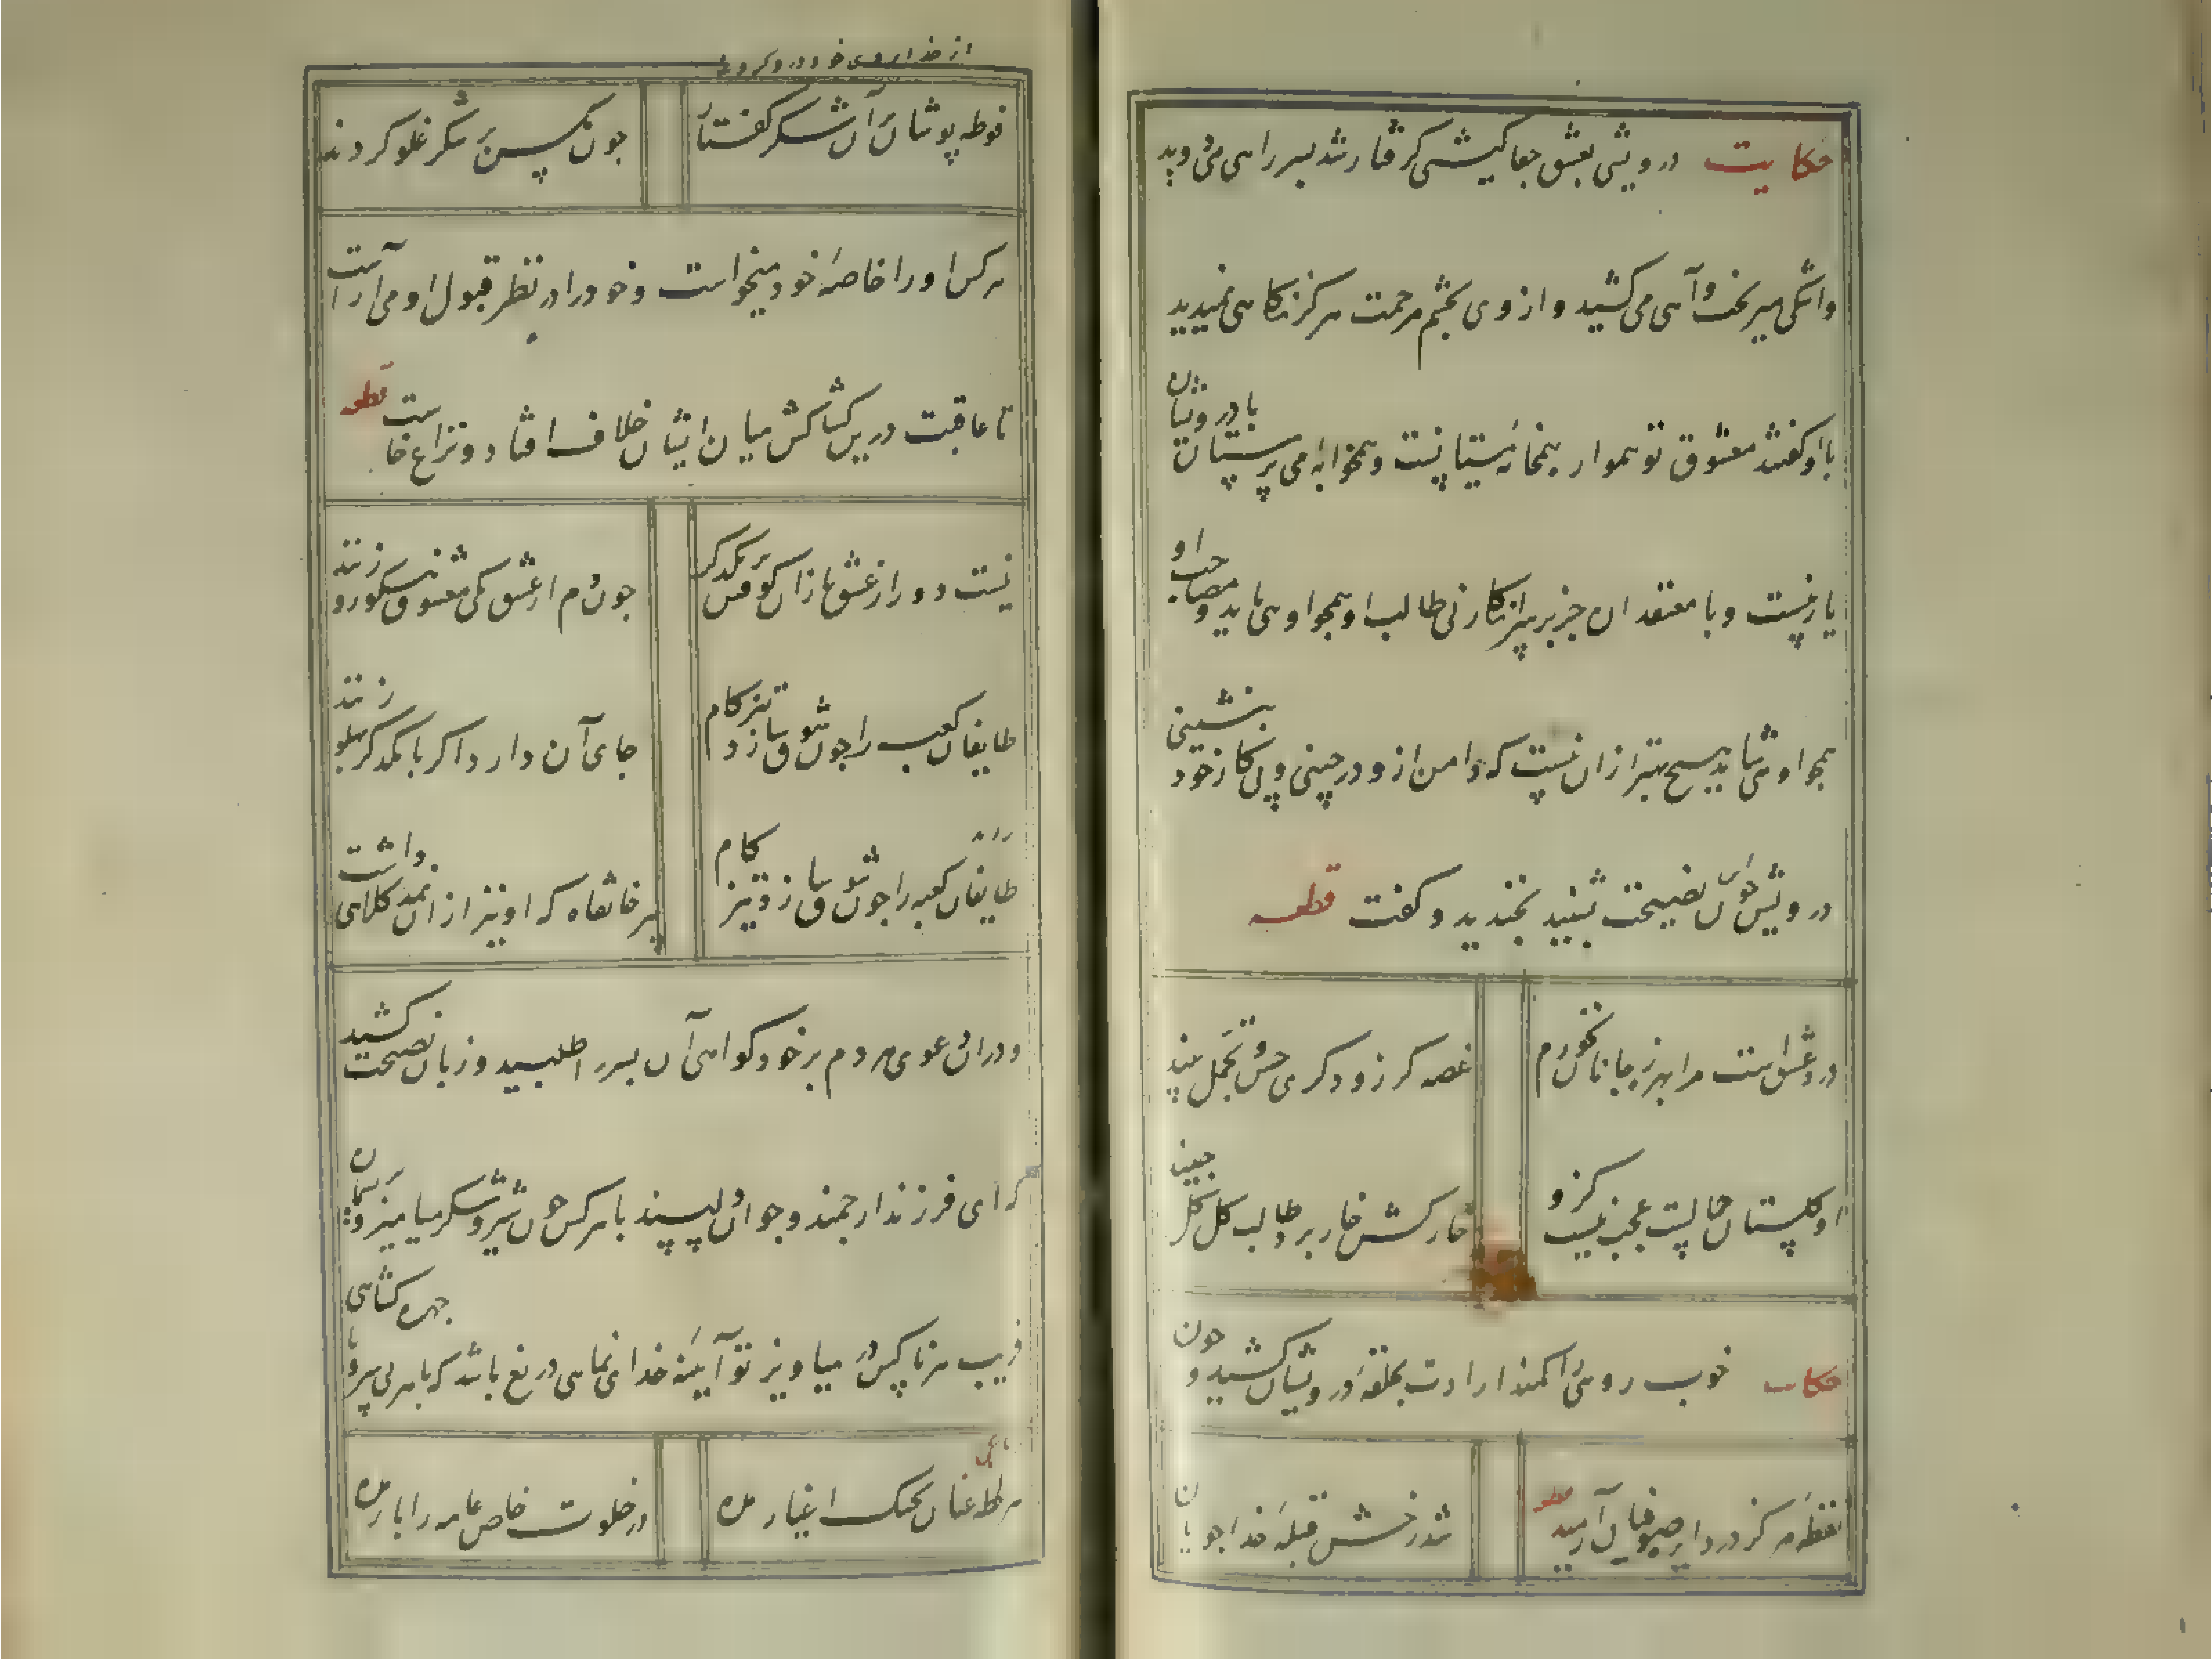 حکایت درویشی بعشق جفاکیشی گرفتار شد بسر راهی می دوید
واشکی میریخت و آهی می کشید و از وی بچشم مرحمت هرگز نگاهی نمیدید
با او گفتند معشوق تو هموار همخانه مستانست و همخوابه می پرستان با درویشان
یار نیست و با معتقدان جز بر سر انکار نی طالب او همچو او می باید و مصاحب او
همچو او می شاید هیچ بهتر از ان نیست که دامن ازو در چینی و پی کار خود بنشینی
درویش چون نصیحت بشنید بخندید و گفت قطعه
درد عشق است مرا بهره ز جانان نخورم
غصه گر زو دگری حسن و تجمل بیند
او گلستان جمالست عجب نیست کزو
خار کش خار برد طالب گل گل چیند
حکایت خوب روئی را کمند ارادت بحلقه درویشان کشید و چون
نقطه مرکز در دایره صوفیان آرمید قطعه
شد رخش قبله خدا جویان
از خدا روی خود درو کردند
فوطه پوشان آن شکر گفتار
چون مگس بر شکر غلو کردند
هر کس او را خاصه خود میخواست و خود را در نظر قبول او می آراست
تا عاقبت درین کشاکش میان ایشان خلاف افتاد و نزاع خاست قطعه
نیست دور از عشق بازان کوفتن بر یکدگر
چون دم از عشق یکی معشوق مشکین مو زنند
طایفان کعبه را چون شوق سازد تیز گام
جای آن دارد اگر با یکدگر پهلو زنند
طایفان کعبه را چون شوق سازد تیز گام
پیر خانقاه که او نیز از ان نمد کلاهی داشت
و در ان دعوی مردم بر خود گواهی آن پسر را طلبید و زبان نصیحت کشید
که ای فرزند ارجمند و جوان دلپسند با هر کس چون شیر و شکر میامیز و بریسمان
فریب هر ناکس در میاویز تو آیینه خدای نمایی دریغ باشد که با هر بی سر و پا چهره کشای
رباعی
هر لحظه عنان بچنگ اغیار مده
در خلوت خاص عامه را بار مده